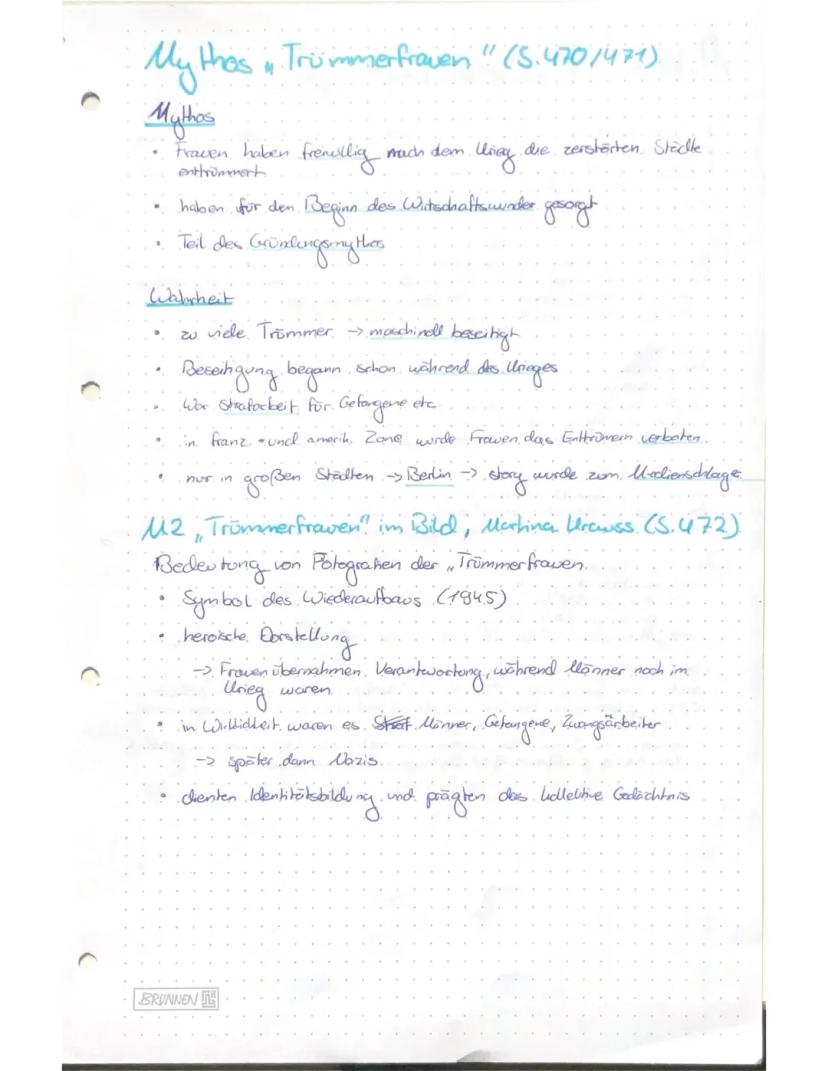 Mythos „Trümmerfrauen" (S.470/471)
Mythos
• Frauen haben freiwillig nach dem Krieg die zerstörten Städte
enttrümmert
• haben für den Beginn des Wirtschaftswunder gesorgt
• Teil des Gründungsmythos
Wahrheit
• zu viele Trümmer -> maschinell beseitigt
• Beseitigung begann schon während des Krieges
• War Strafarbeit für Gefangene etc
• in franz. und amerik. Zone wurde Frauen das Enttrümern verboten
• nur in großen Städten -> Berlin -> story wurde zum Medienschlager
M2 „Trümmerfrauen" im Bild, Martina Krauss (S.472)
Bedeutung von Fotografien der „Trümmerfrauen
• Symbol des Wiederaufbaus (1945)
• heroische Darstellung
-> Frauen übernahmen Verantwortung, während Männer noch im
Krieg waren
• in Wirklichkeit waren es Männer, Gefangene, Zwangsarbeiter
-> später dann Nazis
• dienten Identitätsbildung und prägten das kollektive Gedächtnis
BRUNNEN